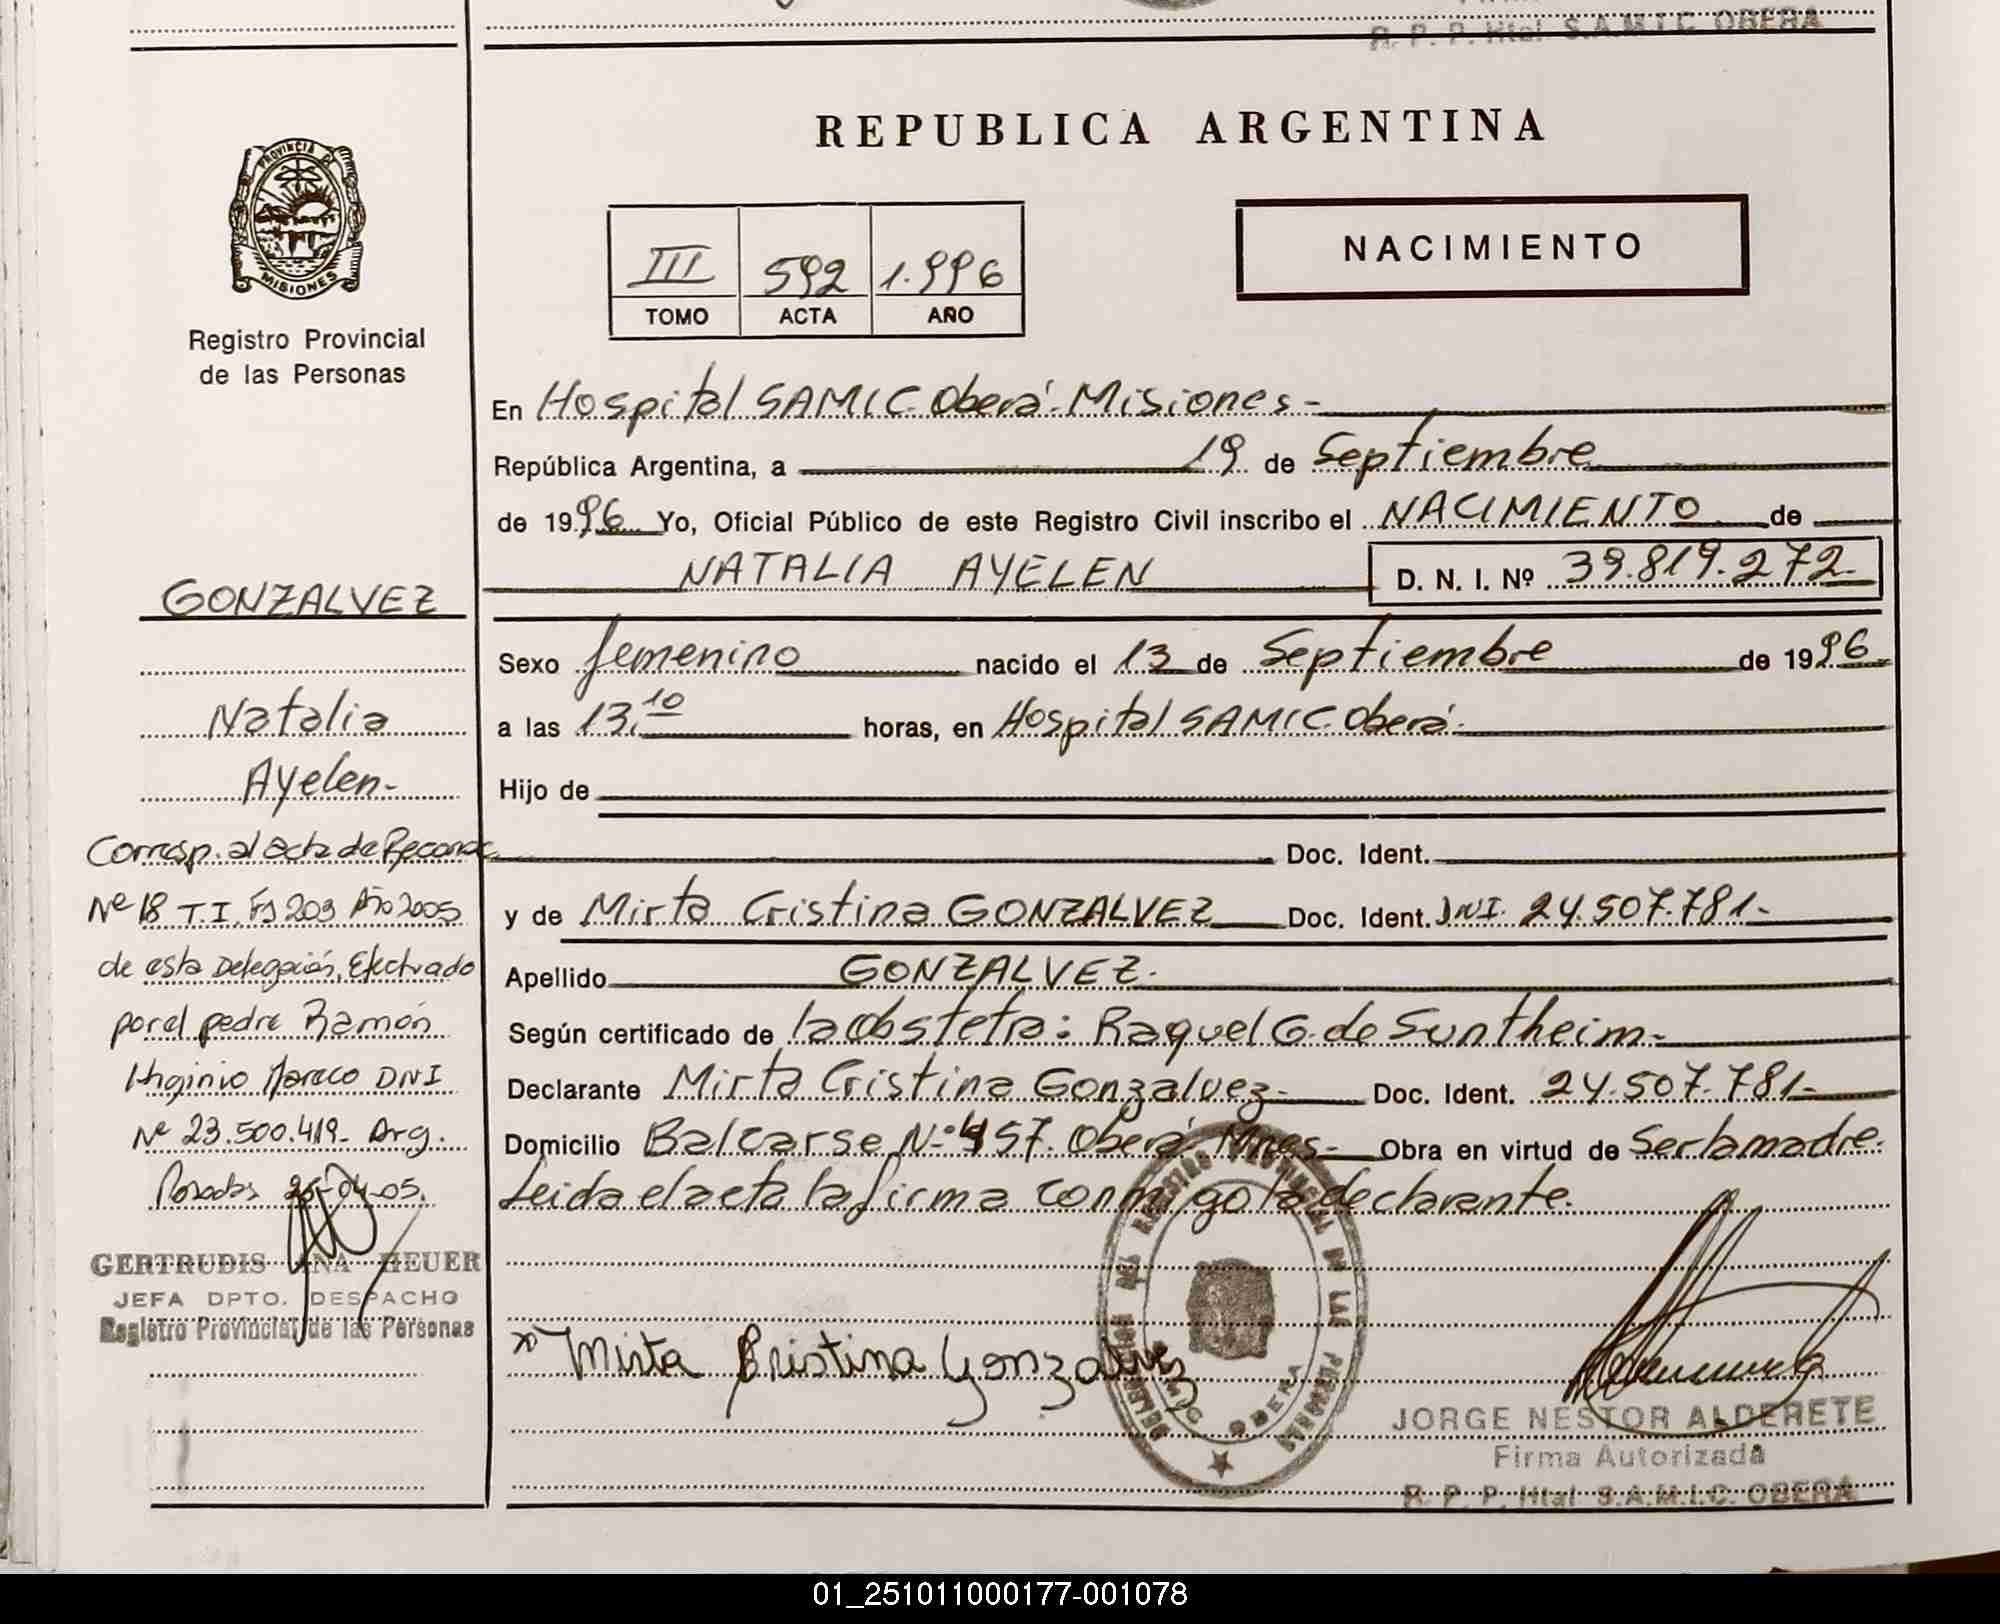 R. P. P. Htal S.A.M.I.C OBERA
PROVINCIA DE
MISIONES
Registro Provincial
de las Personas
GONZALVEZ
Natalia
Ayelen-
Corresp. al acta de Reconoc
Nº 18 T.I. Fº 203 Año 2005
de esta Delegación, Efectuado
por el padre Ramón
Higinio Mareco DNI
Nº 23.500.419- Arg.
Posadas 26-04-05.
GERTRUDIS ANA HEUER
JEFA DPTO. DESPACHO
Registro Provincial de las Personas
REPUBLICA ARGENTINA
III 592 1.996
TOMO ACTA AÑO
NACIMIENTO
En Hospital SAMIC Oberá-Misiones-
República Argentina, a 19 de Septiembre
de 1996 Yo, Oficial Público de este Registro Civil inscribo el NACIMIENTO de
NATALIA AYELEN D. N. I. Nº 39.819.272.-
Sexo femenino nacido el 13 de Septiembre de 1996
a las 13,10 horas, en Hospital SAMIC Oberá-
Hijo de
Doc. Ident.
y de Mirta Cristina GONZALVEZ Doc. Ident. DNI. 24.507.781-
Apellido GONZALVEZ-
Según certificado de la obstetra: Raquel G. de Suntheim-
Declarante Mirta Cristina Gonzalvez- Doc. Ident. 24.507.781-
Domicilio Balcarse Nº 457. Oberá Mnes- Obra en virtud de Ser la madre.
Leida el acta la firma conmigo la declarante.
Mirta Cristina Gonzalvez
OBERA
JORGE NESTOR ALDERETE
Firma Autorizada
R. P. P. Htal S.A.M.I.C. OBERA
01_251011000177-001078